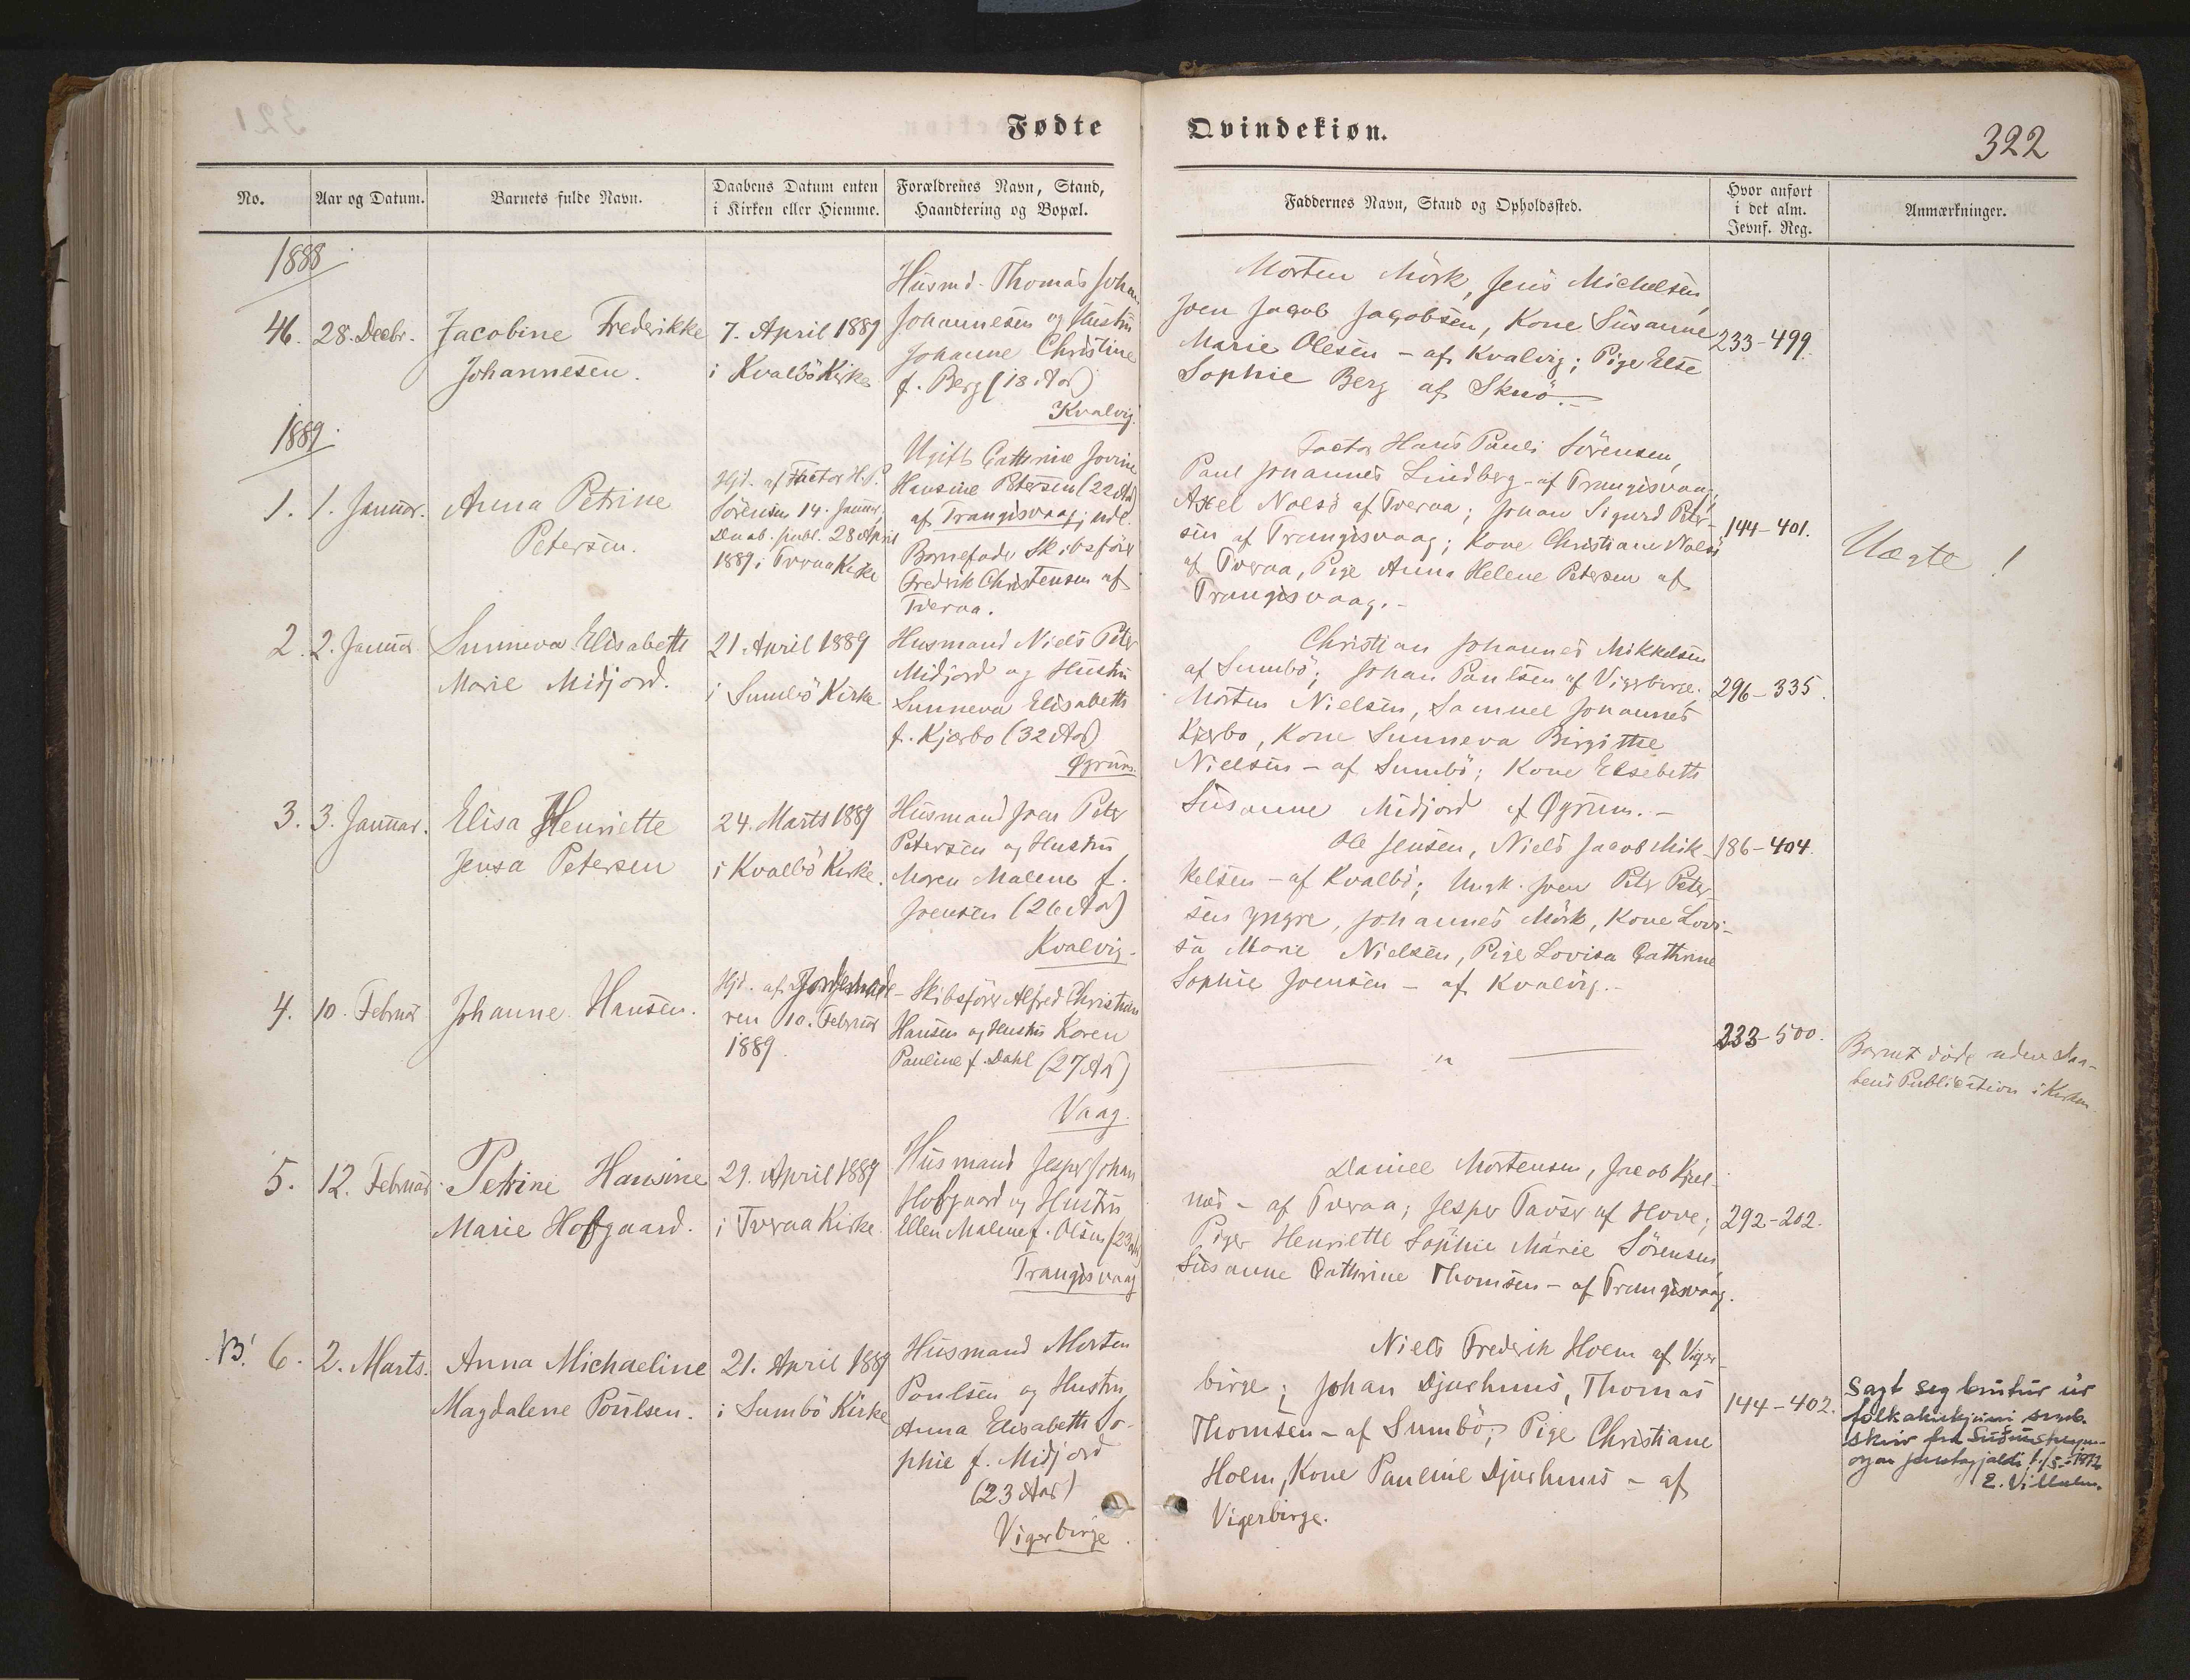 Fødte
Qvindekiøn.
322
No.
Aar og Datum.
Barnets fulde Navn.
Daabens Datum enten
i Kirken eller Hiemme.
Forældrenes Navn, Stand,
Haandtering og Bopæl.
Faddernes Navn, Stand og Opholdssted.
Hvor anført
i det alm.
Jevnf. Reg.
Anmærkninger.
1888
46.
28. Decbr.
Jacobine Frederikke
Johannesen.
7. April 1889
i Kvalbö Kirke
Husmd. Thomas Johan
Johannesen og Hustru
Johanne Christine
f. Berg (18 Aar)
Kvalvig.
Morten Mörk, Jens Michelsen,
Joen Jacob Jacobsen, Kone Susanne
Marie Olesen - af Kvalvig; Pige Else
Sophie Berg af Skuö.-
233-499.
1889.
1.
1. Januar.
Anna Petrine
Petersen.
Hjd. af Factor H. P.
Sörensen 14. Januar,
Daab. publ. 28 April
1889 i Tveraa Kirke
Ugift Cathrine Jovine
Hansine Petersen (22 Aar)
af Trangisvaag; udl.
Barnefader Skibsförer
Fredrik Christensen af
Tveraa.
Factor Hans Pauli Sörensen,
Paul Johannes Lindberg - af Trangisvaag;
Axel Nolsö af Tveraa; Johan Sigurd Peter-
sen af Trangisvaag; Kone Christiane Nolsö
af Tveraa, Pige Anna Helene Petersen af
Trangisvaag.-
144-401.
Uægte!
2.
2. Januar
Sunneva Elisabeth
Marie Midjord.
21. April 1889
i Sumbö Kirke
Husmand Niels Peter
Midjord og Hustru
Sunneva Elisabeth
f. Kjærbo (32 Aar)
Øgrum.
Christian Johannes Mikkelsen
af Sumbö; Johan Paulsen af Vigerbirge;
Morten Nielsen, Samuel Johannes
Kjerbo, Kone Sunneva Birgitthe
Nielsen - af Sumbö; Kone Elsebeth
Susanne Midjord af Øgrum.-
296-335.
3.
3. Januar.
Elisa Henriette
Jensa Petersen
24. Marts 1889
i Kvalbö Kirke.
Husmand Joen Peter
Petersen og Hustru
Maren Malene f.
Joensen (26 Aar)
Kvalvig.
Ole Jensen, Niels Jacob Mik-
kelsen - af Kvalbö; Ungk. Joen Peter Peter-
sen yngre, Johannes Mörk, Kone Lovi-
sa Marie Nielsen, Pige Lovisa Cathrine
Sophie Joensen - af Kvalvig.-
186-404.
4.
10. Februar
Johanne Hansen.
Hjd. af Jordemode-
ren 10. Februar
1889.
Skibsförer Alfred Christian
Hansen og Hustru Karen
Pauline f. Dahl (27 Aar)
Vaag.
— " —
233-500.
Barnet döde uden Daa-
bens Publication i Kirken.
5.
12. Februar
Petrine Hansine
Marie Hofgaard.
29. April 1889
i Tveraa Kirke.
Husmand Jesper Johan
Hofgaard og Hustru
Ellen Malene f. Olsen (23 Aar)
Trangisvaag
Daniel Mortensen, Jacob Kjæl-
næs - af Tveraa; Jesper Tausen af Hove;
Piger Henriette Sophie Marie Sörensen,
Susanne Cathrine Thomsen - af Trangisvaag.
292-202.
6.
2. Marts.
Anna Michaeline
Magdalene Poulsen.
21. April 1889
i Sumbö Kirke
Husmand Morten
Poulsen og Hustru
Anna Elisabeth So-
phie f. Midjord
(23 Aar)
Vigerbirge.
Niels Frederik Holm af Viger-
birge; Johan Djurhuus, Thomas
Thomsen - af Sumbö; Pige Christiane
Holm, Kone Pauline Djurhuus - af
Vigerbirge.
144-402.
Sagt seg burtur úr
fólkakirkjuni smb.
skriv frá
E. Vilhelm.